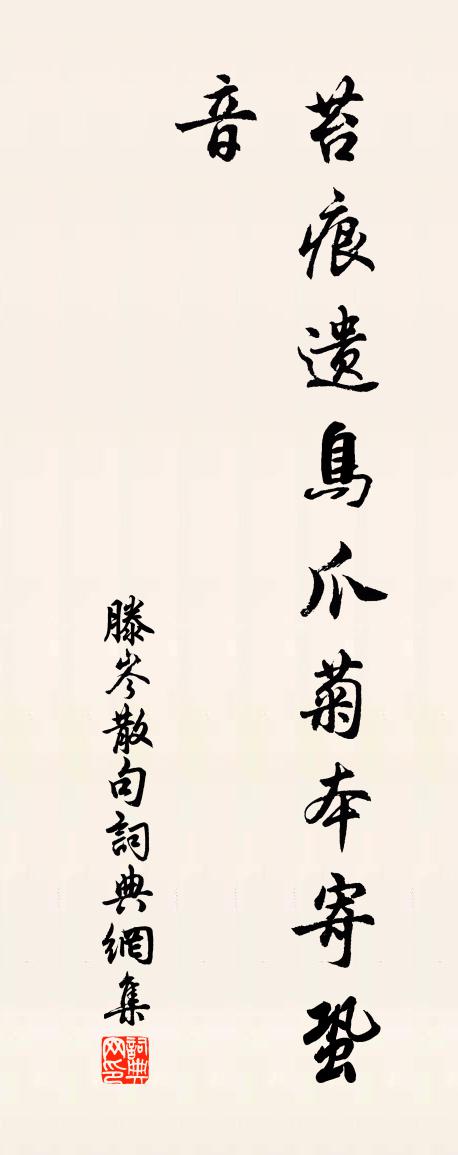 苔痕遺鳥爪菊本寄蛩
音
滕岑散句詞典網集
詞典网印